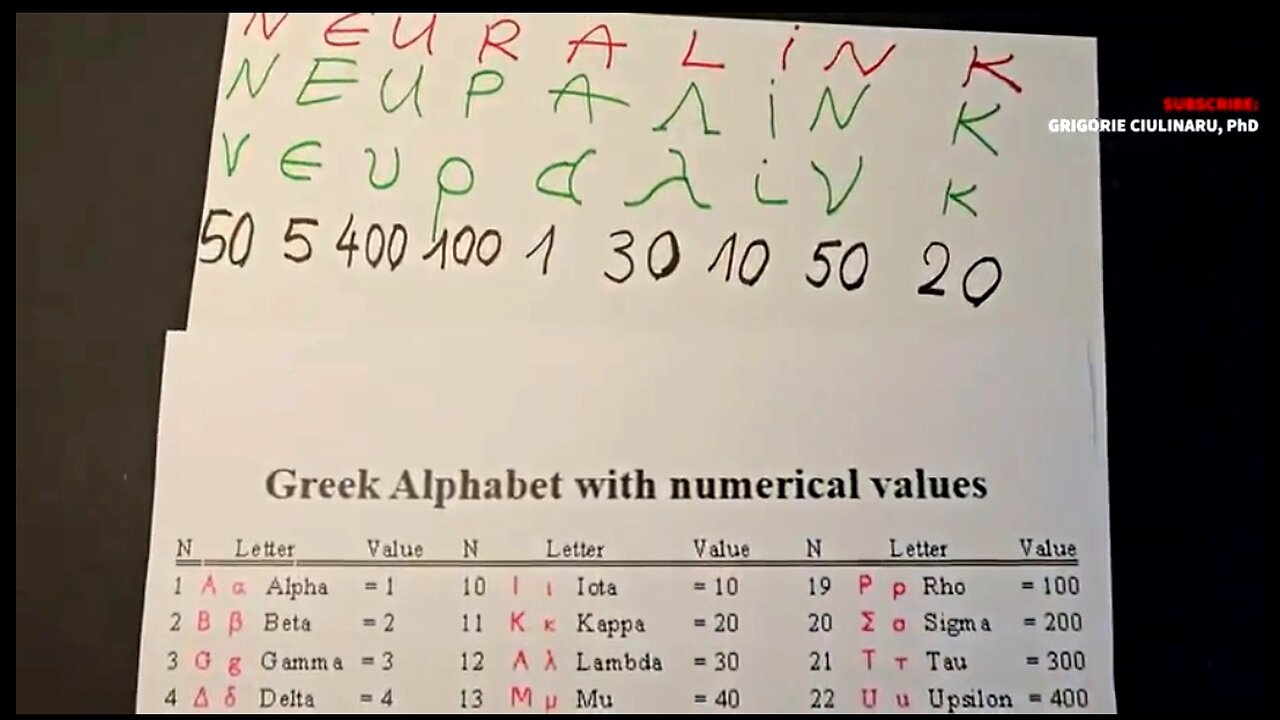 NEURALiNK
SUBSCRIBE:
GRIGORIE CIULINARU, PhD
NEUPAΛiNK
νευραλiνκ
50 5 400 100 1 30 10 50 20
Greek Alphabet with numerical values
N Letter Value N Letter Value N Letter Value
1 Α α Alpha = 1 10 Ι ι Iota = 10 19 Ρ ρ Rho = 100
2 Β β Beta = 2 11 Κ κ Kappa = 20 20 Σ σ Sigma = 200
3 G g Gamma = 3 12 Λ λ Lambda = 30 21 Τ τ Tau = 300
4 Δ δ Delta = 4 13 Μ μ Mu = 40 22 U u Upsilon = 400